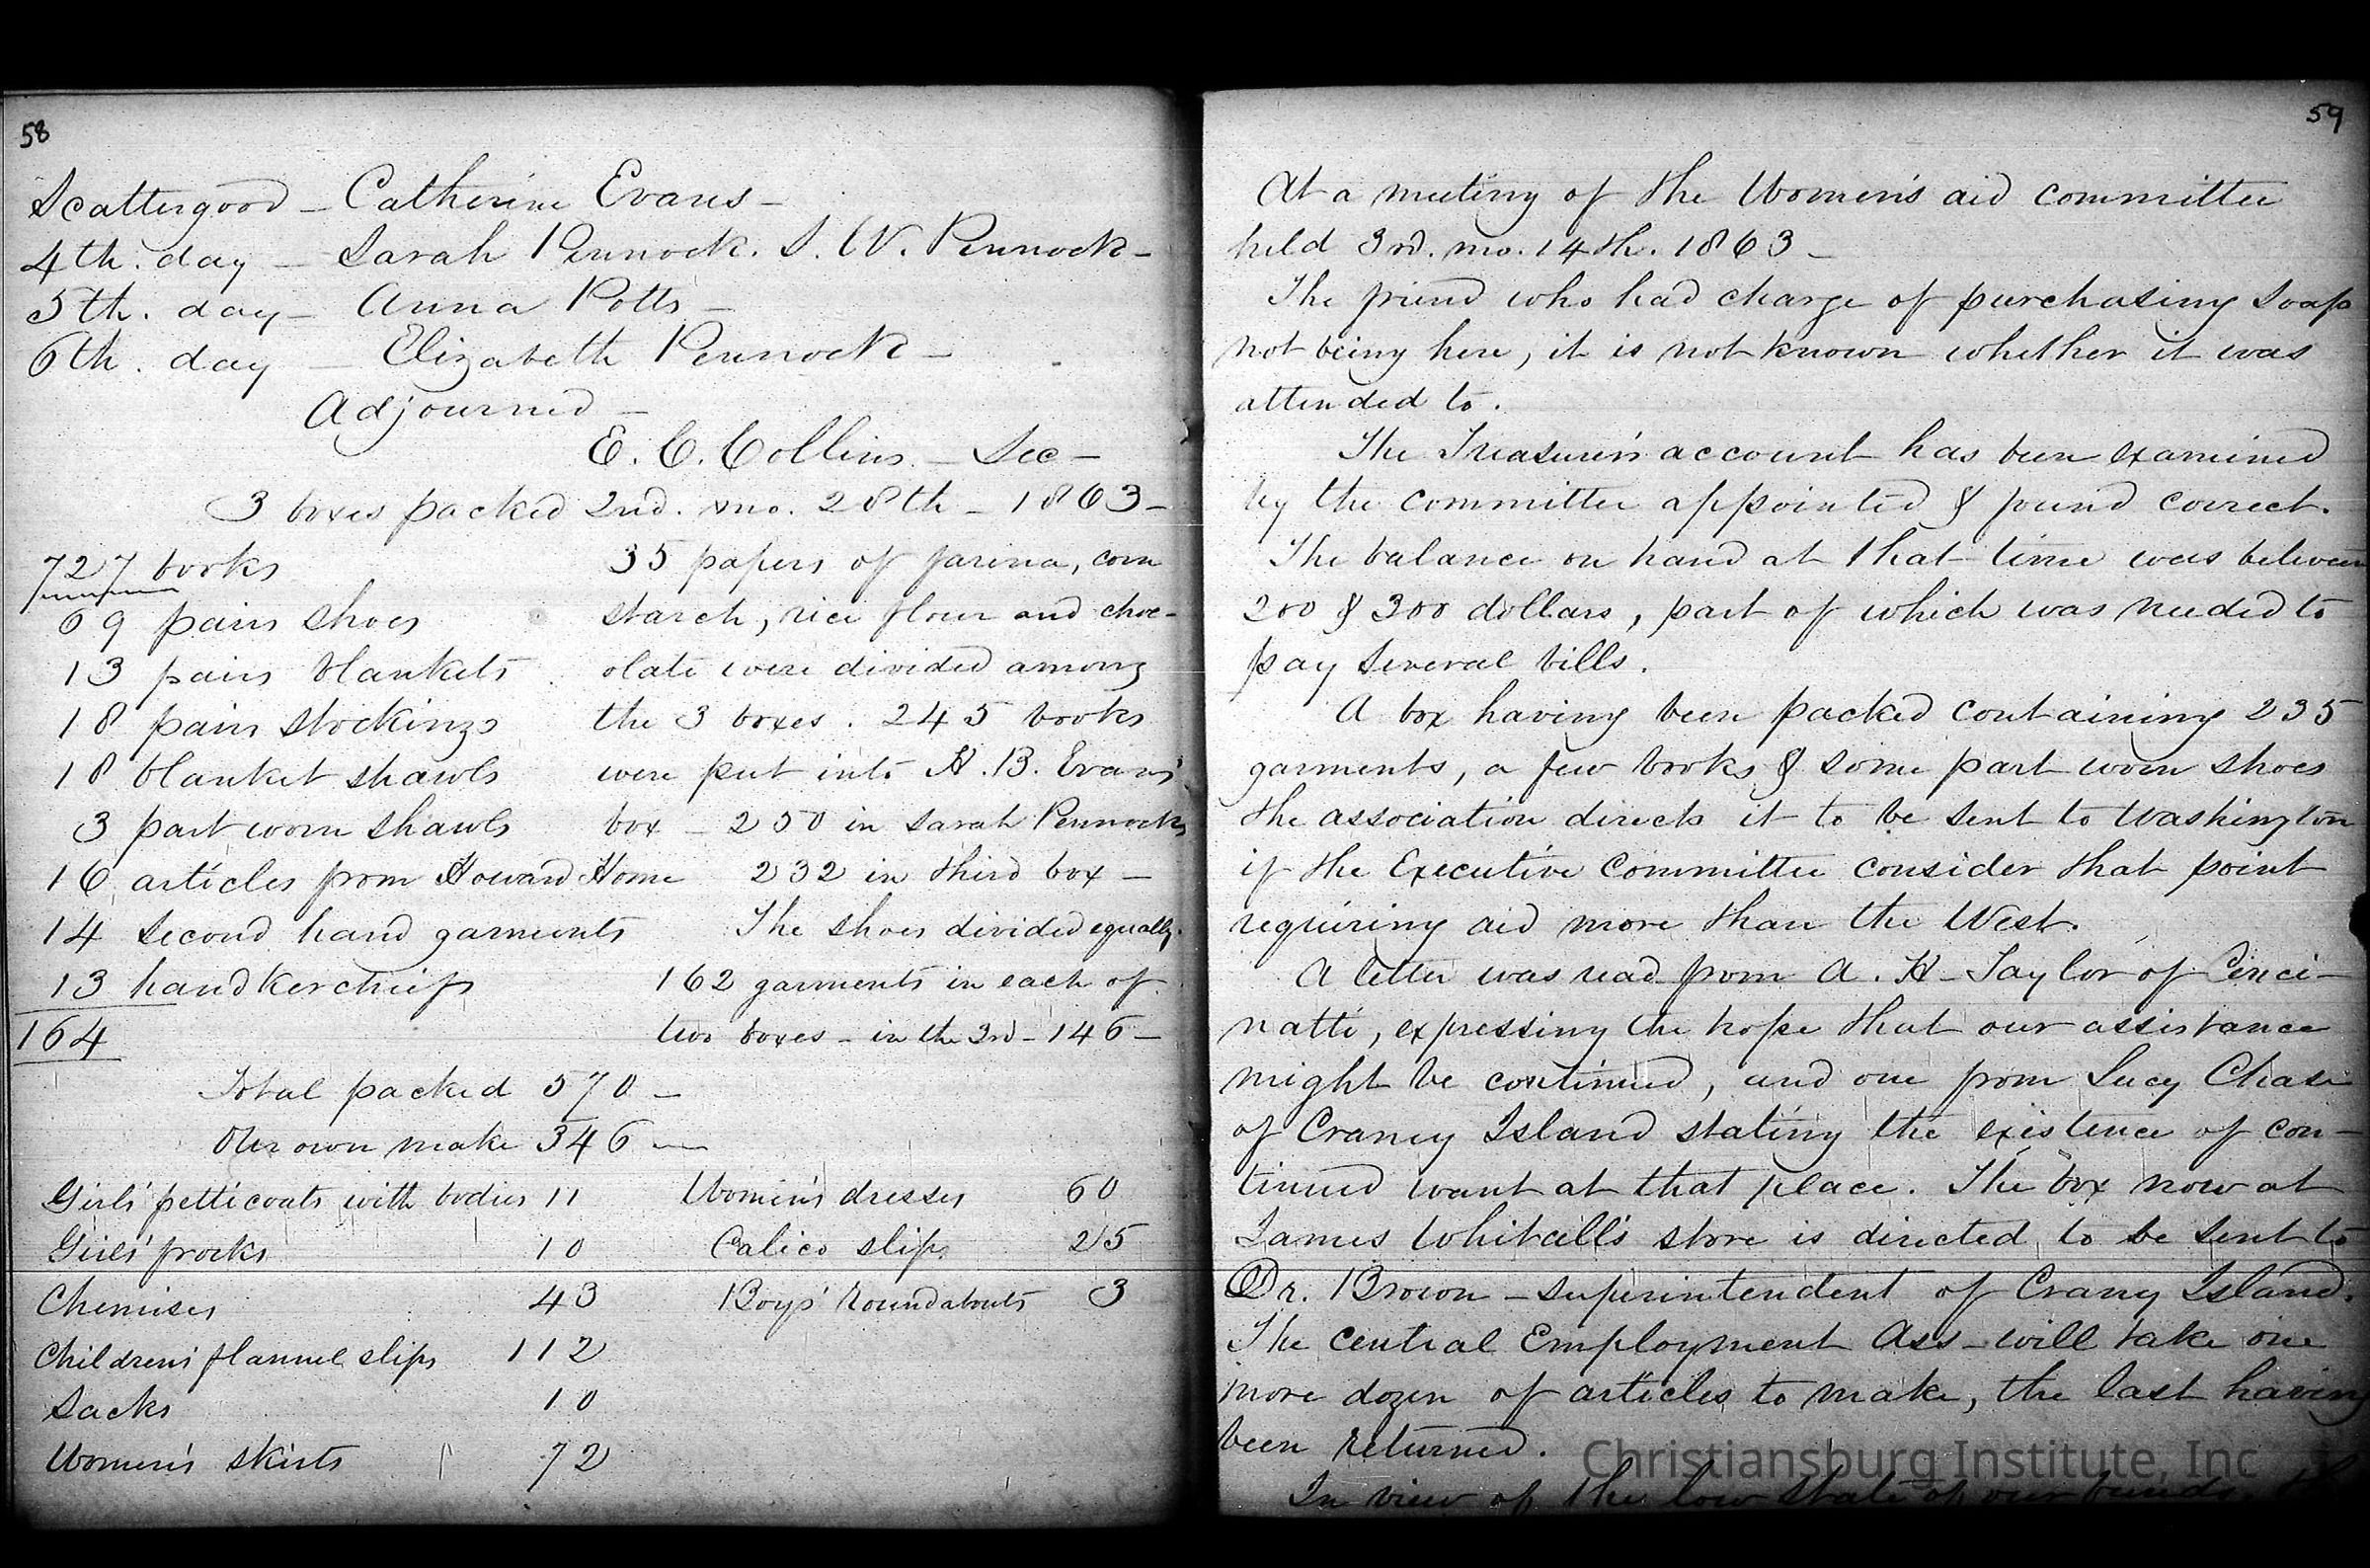 58
Scattergood - Catherine Evans -
4th. day - Sarah Pennock. S. W. Pennock -
5th. day - Anna Potts -
6th. day - Elizabeth Pennock -
Adjourned -
E. C. Collins - Sec -
3 boxes packed 2nd. mo. 28th - 1863 -
727 books
69 pairs shoes
13 pairs blankets
18 pairs stockings
18 blanket shawls
3 part worn shawls
16 articles from Howard Home
14 second hand garments
13 handkerchiefs
164
35 papers of farina, corn
starch, rice flour and choc-
olate were divided among
the 3 boxes. 245 books
were put into H. B. Evans'
box - 250 in Sarah Pennocks
232 in third box -
The shoes divided equally.
162 garments in each of
two boxes - in the 3rd - 146 -
Total packed 570 -
Our own make 346 -
Girls' petticoats with bodies 11
Girls' frocks 10
Chemises 43
Children's flannel slips 112
Sacks 10
Women's skirts 72
Women's dresses 60
Calico slips 25
Boys' roundabouts 3
59
At a meeting of the Women's aid committee
held 3rd. mo. 14th. 1863 -
The friend who had charge of purchasing soap
not being here, it is not known whether it was
attended to.
The Treasurer's account has been examined
by the committee appointed & found correct.
The balance on hand at that time was between
200 & 300 dollars, part of which was needed to
pay several bills.
A box having been packed containing 235
garments, a few books & some part worn shoes
the association directs it to be sent to Washington
if the Executive Committee consider that point
requiring aid more than the West.
A letter was read from A. H - Taylor of Cinci-
natti, expressing the hope that our assistance
might be continued, and one from Lucy Chase
of Craney Island stating the existence of con-
tinued want at that place. The box now at
James Whitall's store is directed to be sent to
Dr. Brown - superintendent of Crany Island.
The Central Employment Ass - will take one
more dozen of articles to make, the last having
been returned.
In view of the low state of our funds, the
Christiansburg Institute, Inc